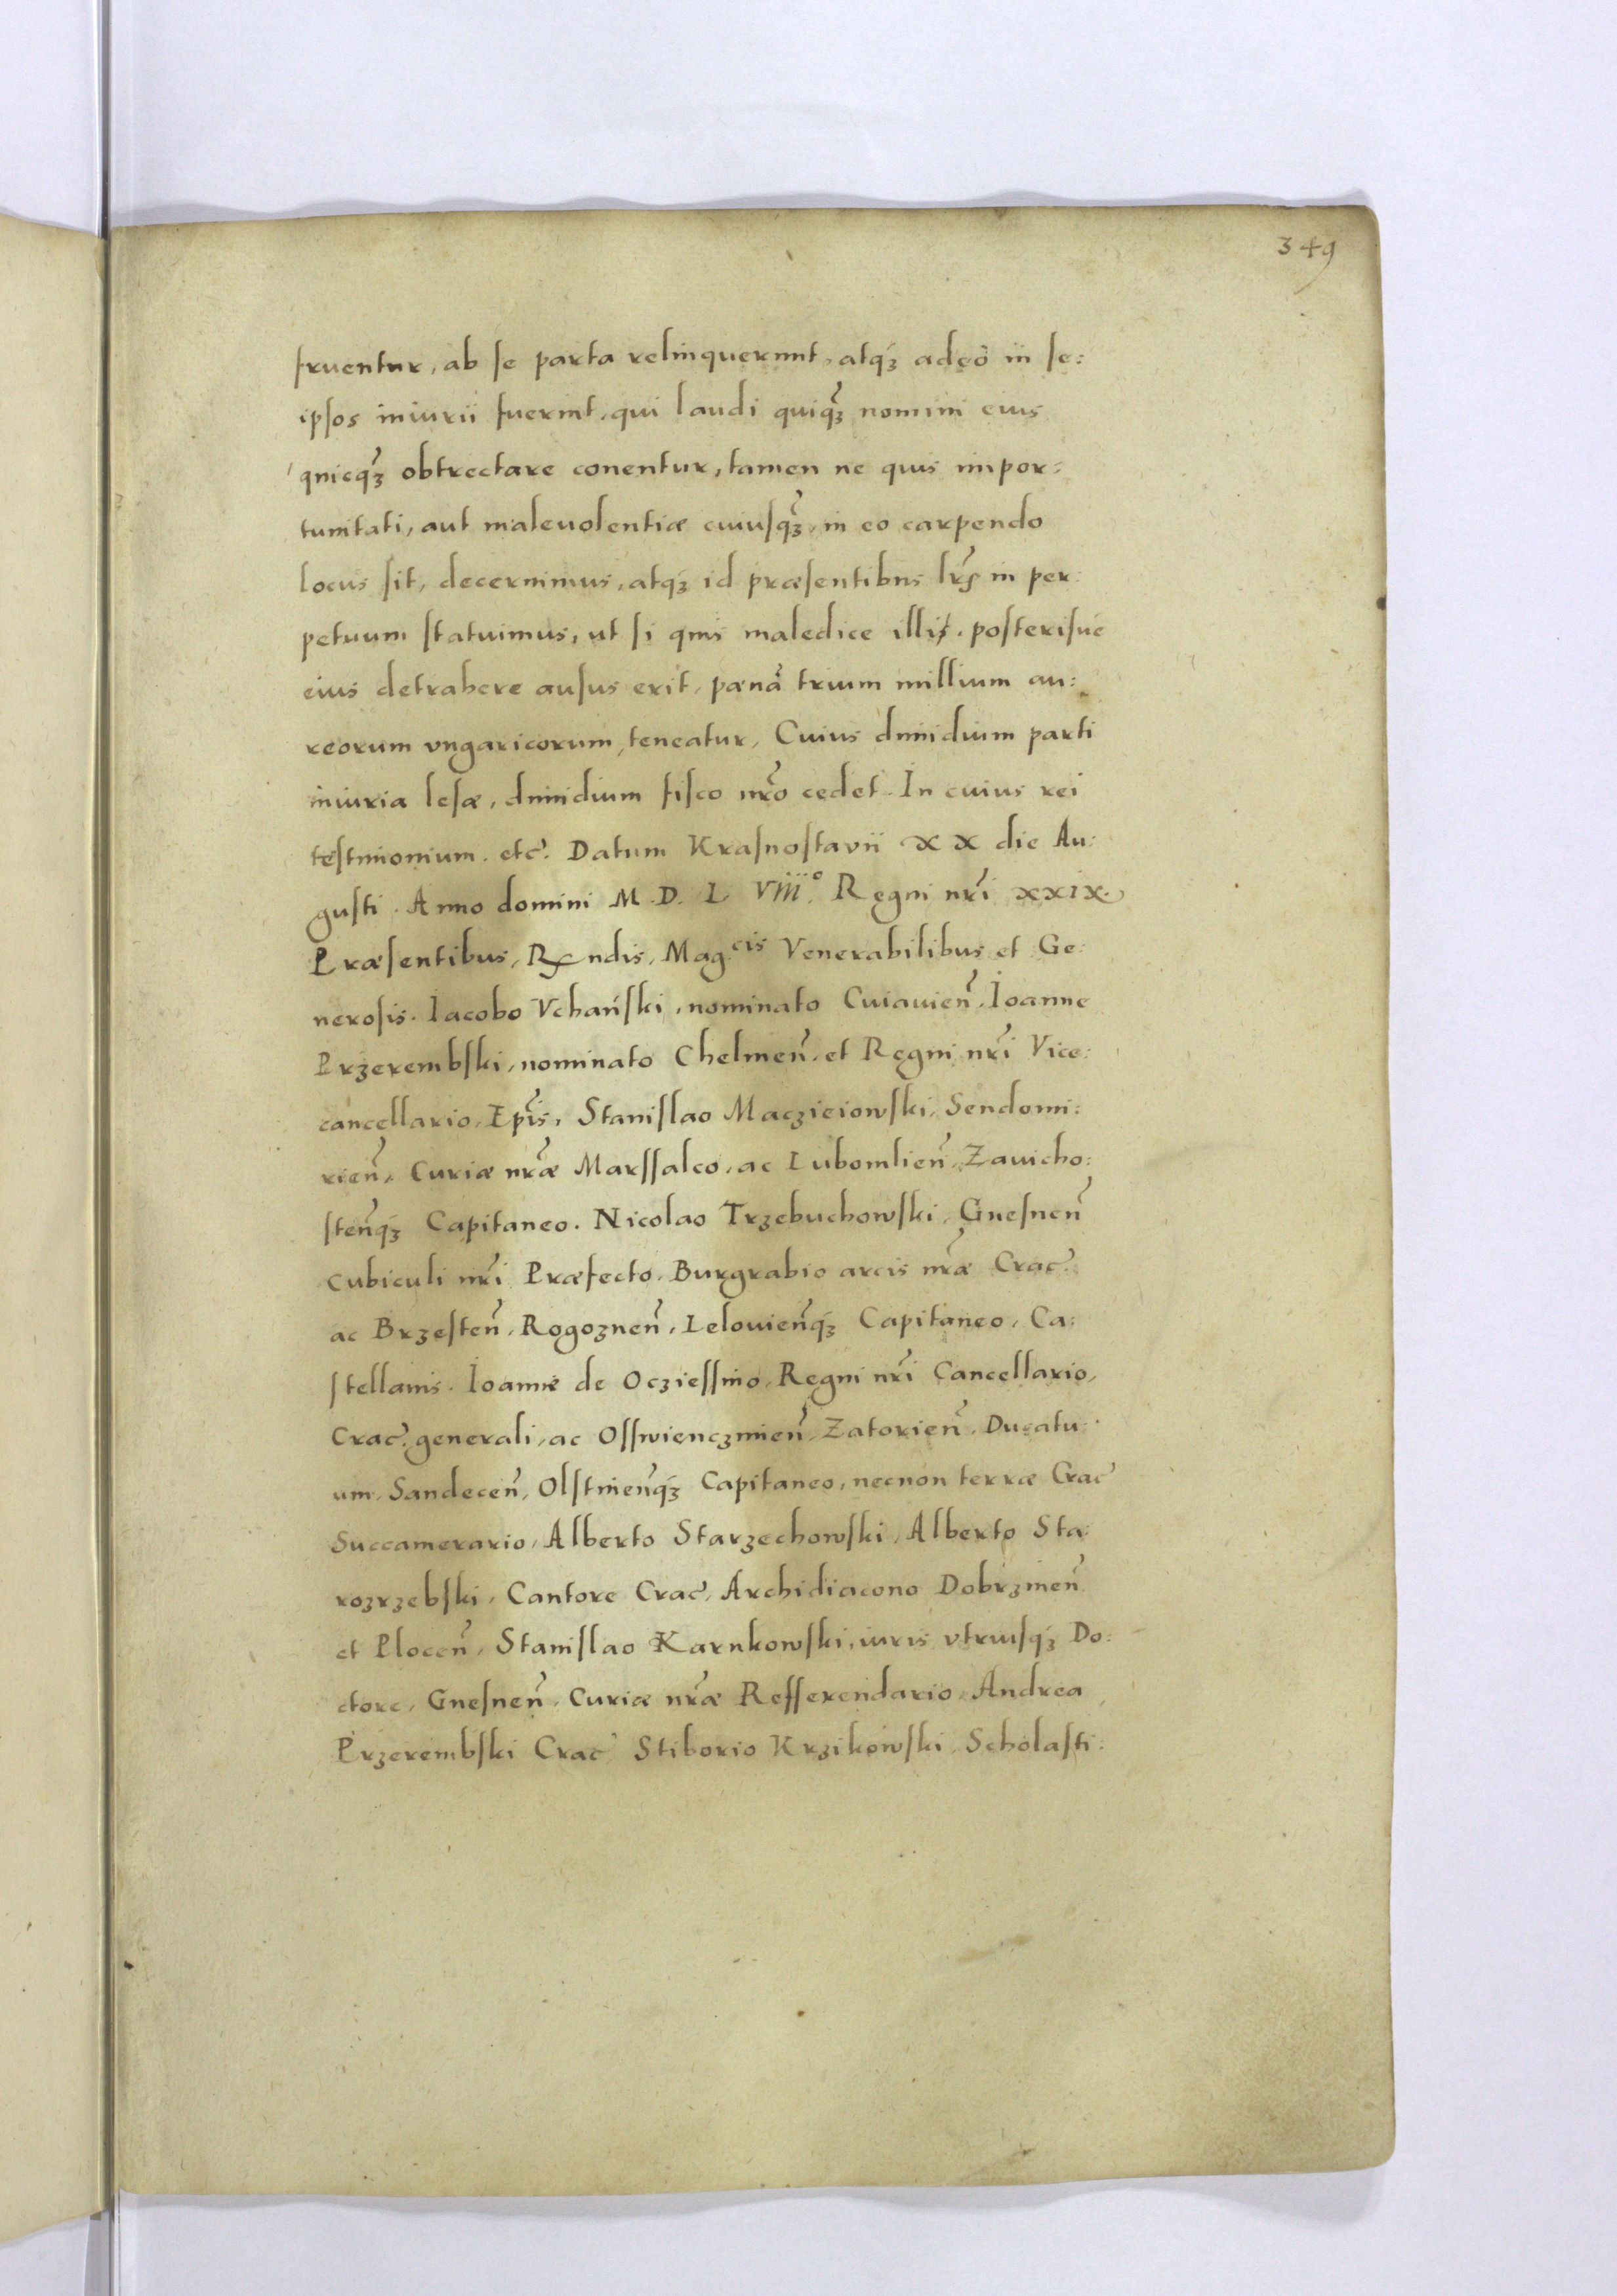 349
fruentur, ab se parta relinquerunt, atqȝ adeò in se:
ipsos iniurii fuerint, qui laudi quiqȝ nomini eius
quicqȝ obtrectare conentur, tamen ne quis impor:
tunitati, aut maleuolentiæ cuiusqȝ, in eo carpendo
locus sit, decernimus, atqȝ id præsentibus lrs̃ in per:
petuum statuimus, ut si quis maledice illis, posterisuè
eius detrahere ausus erit, pænâ trium millium au:
reorum vngaricorum teneatur, Cuius dimidium parti
iniuria lesæ, dimidium fisco nr̃o cedet. In cuius rei
testimonium. etc̃. Datum Krasnostavii XX die Au:
gusti. Anno domini M.D.L VIII.° Regni nr̃i XXIX.
Præsentibus, Rndis, Mag.cis Venerabilibus et Ge:
nerosis. Iacobo Vchański, nominato Cuiauien̄. Ioanne
Przerembski, nominato Chelmen̄. et Regni nr̃i Vice:
cancellario, Ep̃is, Stanislao Maczieiowski, Sendomi:
rien̄, Curiæ nr̃æ Marssalco, ac Lubomlien̄, Zauicho:
sten̄qȝ Capitaneo. Nicolao Trzebuchowski, Gnesnen̄
Cubiculi nr̃i Præfecto, Burgrabio arcis nr̃æ Crac̃.
ac Brzesten̄, Rogoznen̄, Lelouien̄qȝ Capitaneo, Ca:
stellanis. Ioanne de Ocziessino, Regni nr̃i Cancellario,
Crac̃. generali, ac Osswienczimien̄, Zatorien̄. Ducatu:
um, Sandecen̄, Olstinen̄qȝ Capitaneo, necnon terræ Crac̃
Succamerario, Alberto Starzechowski, Alberto Sta:
rozrzebski, Cantore Crac̃, Archidiacono Dobrzinen̄
et Plocen̄, Stanislao Karnkowski, iuris vtriusqȝ Do:
ctore, Gnesnen̄, Curiæ nr̃æ Refferendario, Andrea
Przerembski Crac̃ Stiborio Krzikowski, Scholasti: